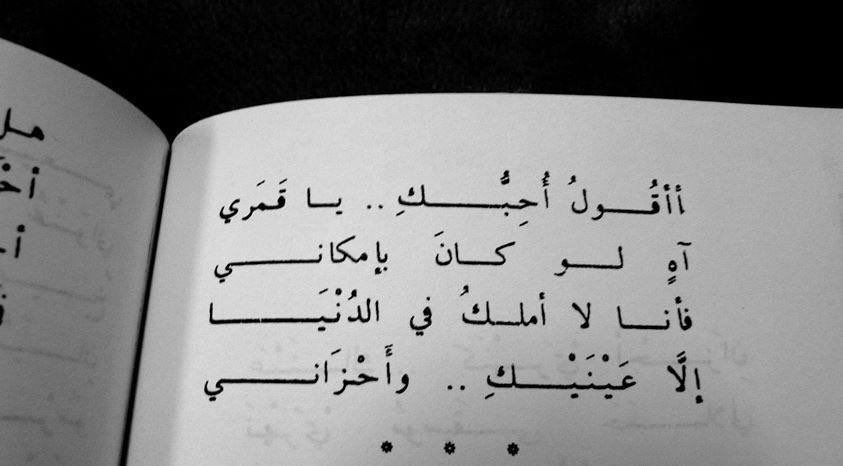 أأقُولُ أُحِبُّكِ .. يا قَمَري
آهٍ لو كانَ بإمكاني
فأنا لا أملكُ في الدُنْيَا
إلَّا عَيْنَيْكِ .. وأَحْزَاني
* * *